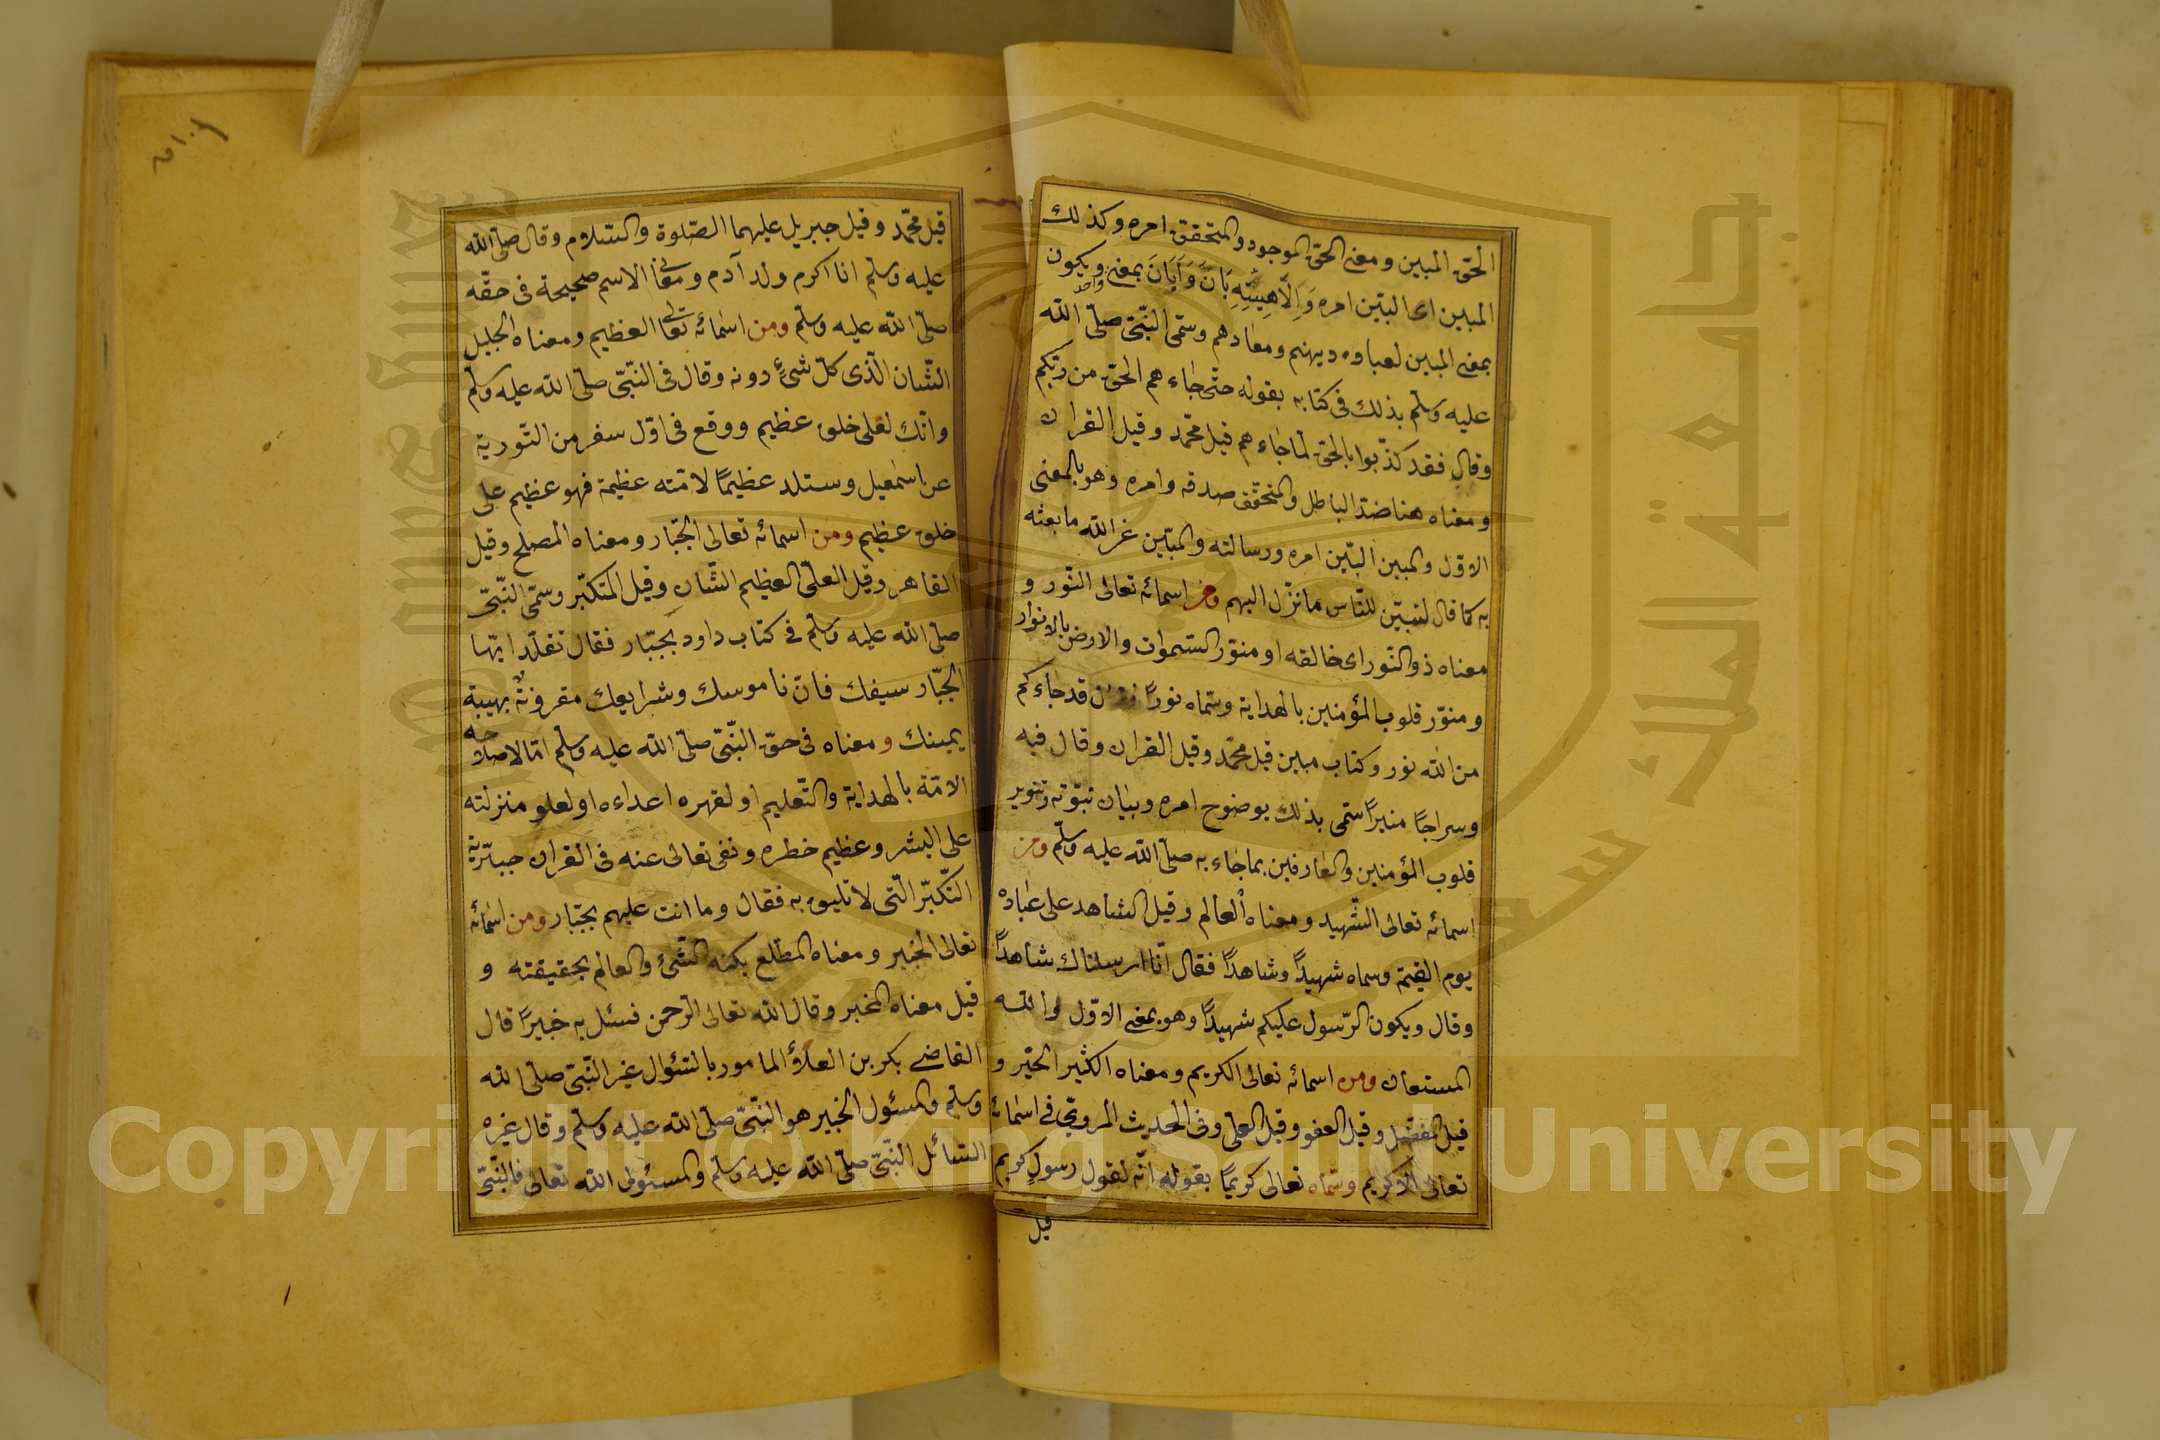 الحق المبين ومعنى الحق الموجود والمتحقق امره وكذلك
المبين اى البين امره وَاِلٰاهِيّتِهِ بَانَ وَاَبَانَ بمعنى واحد ويكون
بمعنى المبين لعباده دينهم ومعادهم وسمّى النّبىّ صلّى اللّٰه
عليه وسلّم بذلك فى كتابه بقوله حتّى جاءهم الحق من ربّكم
وقال فقد كذّبوا بالحقّ لمّا جاءهم قيل محمّد وقيل القران
ومعناه هنا ضدّ الباطل والمتحقّق صدقه وامره وهو بالمعنى
الاوّل والمبين البيّن امره ورسالته والمبيّن عن اللّٰه ما بعثه
به كما قال لتبيّن للنّاس ما نزّل اليهم ومن اسمائه تعالى النّور و
معناه ذو النّور اى خالقه او منوّر السّموات والارض بالانوار
ومنوّر قلوب المؤمنين بالهداية وسمّاه نورًا فقال قد جاءكم
من اللّٰه نور وكتاب مبين قيل محمّد وقيل القران وقال فيه
وسراجًا منيرًا سمّى بذلك بوضوح امره وبيان نبوّته وتنوير
قلوب المؤمنين والعارفين بما جاء به صلّى اللّٰه عليه وسلّم ومن
اسمائه تعالى الشّهيد ومعناه العالم وقيل الشاهد على عباده
يوم القيمة وسماه شهيدًا وشاهدًا فقال انّا ارسلناك شاهدًا
وقال ويكون الرّسول عليكم شهيدًا وهو بمعنى الاوّل واللّٰه
المستعان ومن اسمائه تعالى الكريم ومعناه الكثير الخير و
قيل المفضل وقيل العفو وقيل العلى وفى الحديث المروىّ فى اسمائه
تعالى الاكريم وسمّاه تعالى كريمًا بقوله انّه لقول رسولٍ كريم
قيل
قيل محمّد وقيل جبريل عليهما الصّلوة والسّلام وقال صلّى اللّٰه
عليه وسلّم انا اكرم ولد آدم ومعانى الاسم صحيحة فى حقّه
صلّى اللّٰه عليه وسلّم ومن اسمائه تعالى العظيم ومعناه الجليل
الشّان الّذى كلّ شىءٍ دونه وقال فى النّبىّ صلّى اللّٰه عليه وسلّم
وانّك لعلى خلق عظيم ووقع فى اوّل سفر من التّورية
عن اسمٰعيل وستلد عظيمًا لامّته عظيمة فهو عظيم على
خلق عظيم ومن اسمائه تعالى الجبّار ومعناه المصلح وقيل
القاهر وقيل العلىّ العظيم الشّان وقيل المتكبّر وسمّى النّبىّ
صلّى اللّٰه عليه وسلّم فى كتاب داود بجبّار فقال تقلّد ايّها
الجبّار سيفك فانّ ناموسك وشرايعك مقرونةٌ بهيبة
يمينك ومعناه فى حقّ النّبىّ صلّى اللّٰه عليه وسلّم امّا لاصلاحه
الامّة بالهداية والتّعليم او لقهره اعداءه او لعلو منزلته
على البشر وعظيم خطره ونفى تعالى عنه فى القران جبريّة
التّكبّر الّتى لا تليق به فقال وما انت عليهم بجبّار ومن اسمائه
تعالى الخبير ومعناه المطّلع بكنه الشّىء والعالم بحقيقته و
قيل معناه المخبر وقال اللّٰه تعالى الرّحمن فسئل به خبيرًا قال
القاضى بكر بن العلاء المامور بالسّئوال غير النّبىّ صلّى اللّٰه
وسلّم والمسئول الخبير هو النّبىّ صلّى اللّٰه عليه وسلّم وقال غيره
السّائل النّبىّ صلّى اللّٰه عليه وسلّم والمسئول اللّٰه تعالى فالنّبىّ
جامعة الملك سعود
King Saud University
Copyright © King Saud University